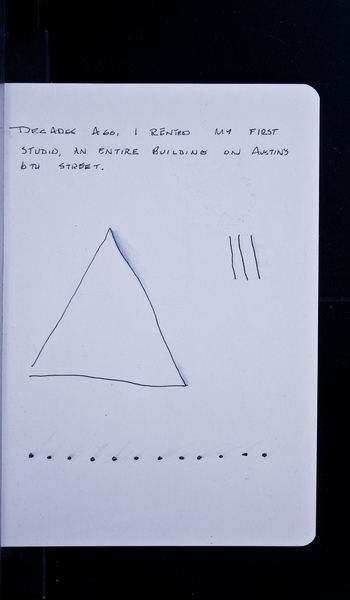 DECADES AGO, I RENTED MY FIRST
STUDIO, AN ENTIRE BUILDING ON AUSTIN'S
6TH STREET.